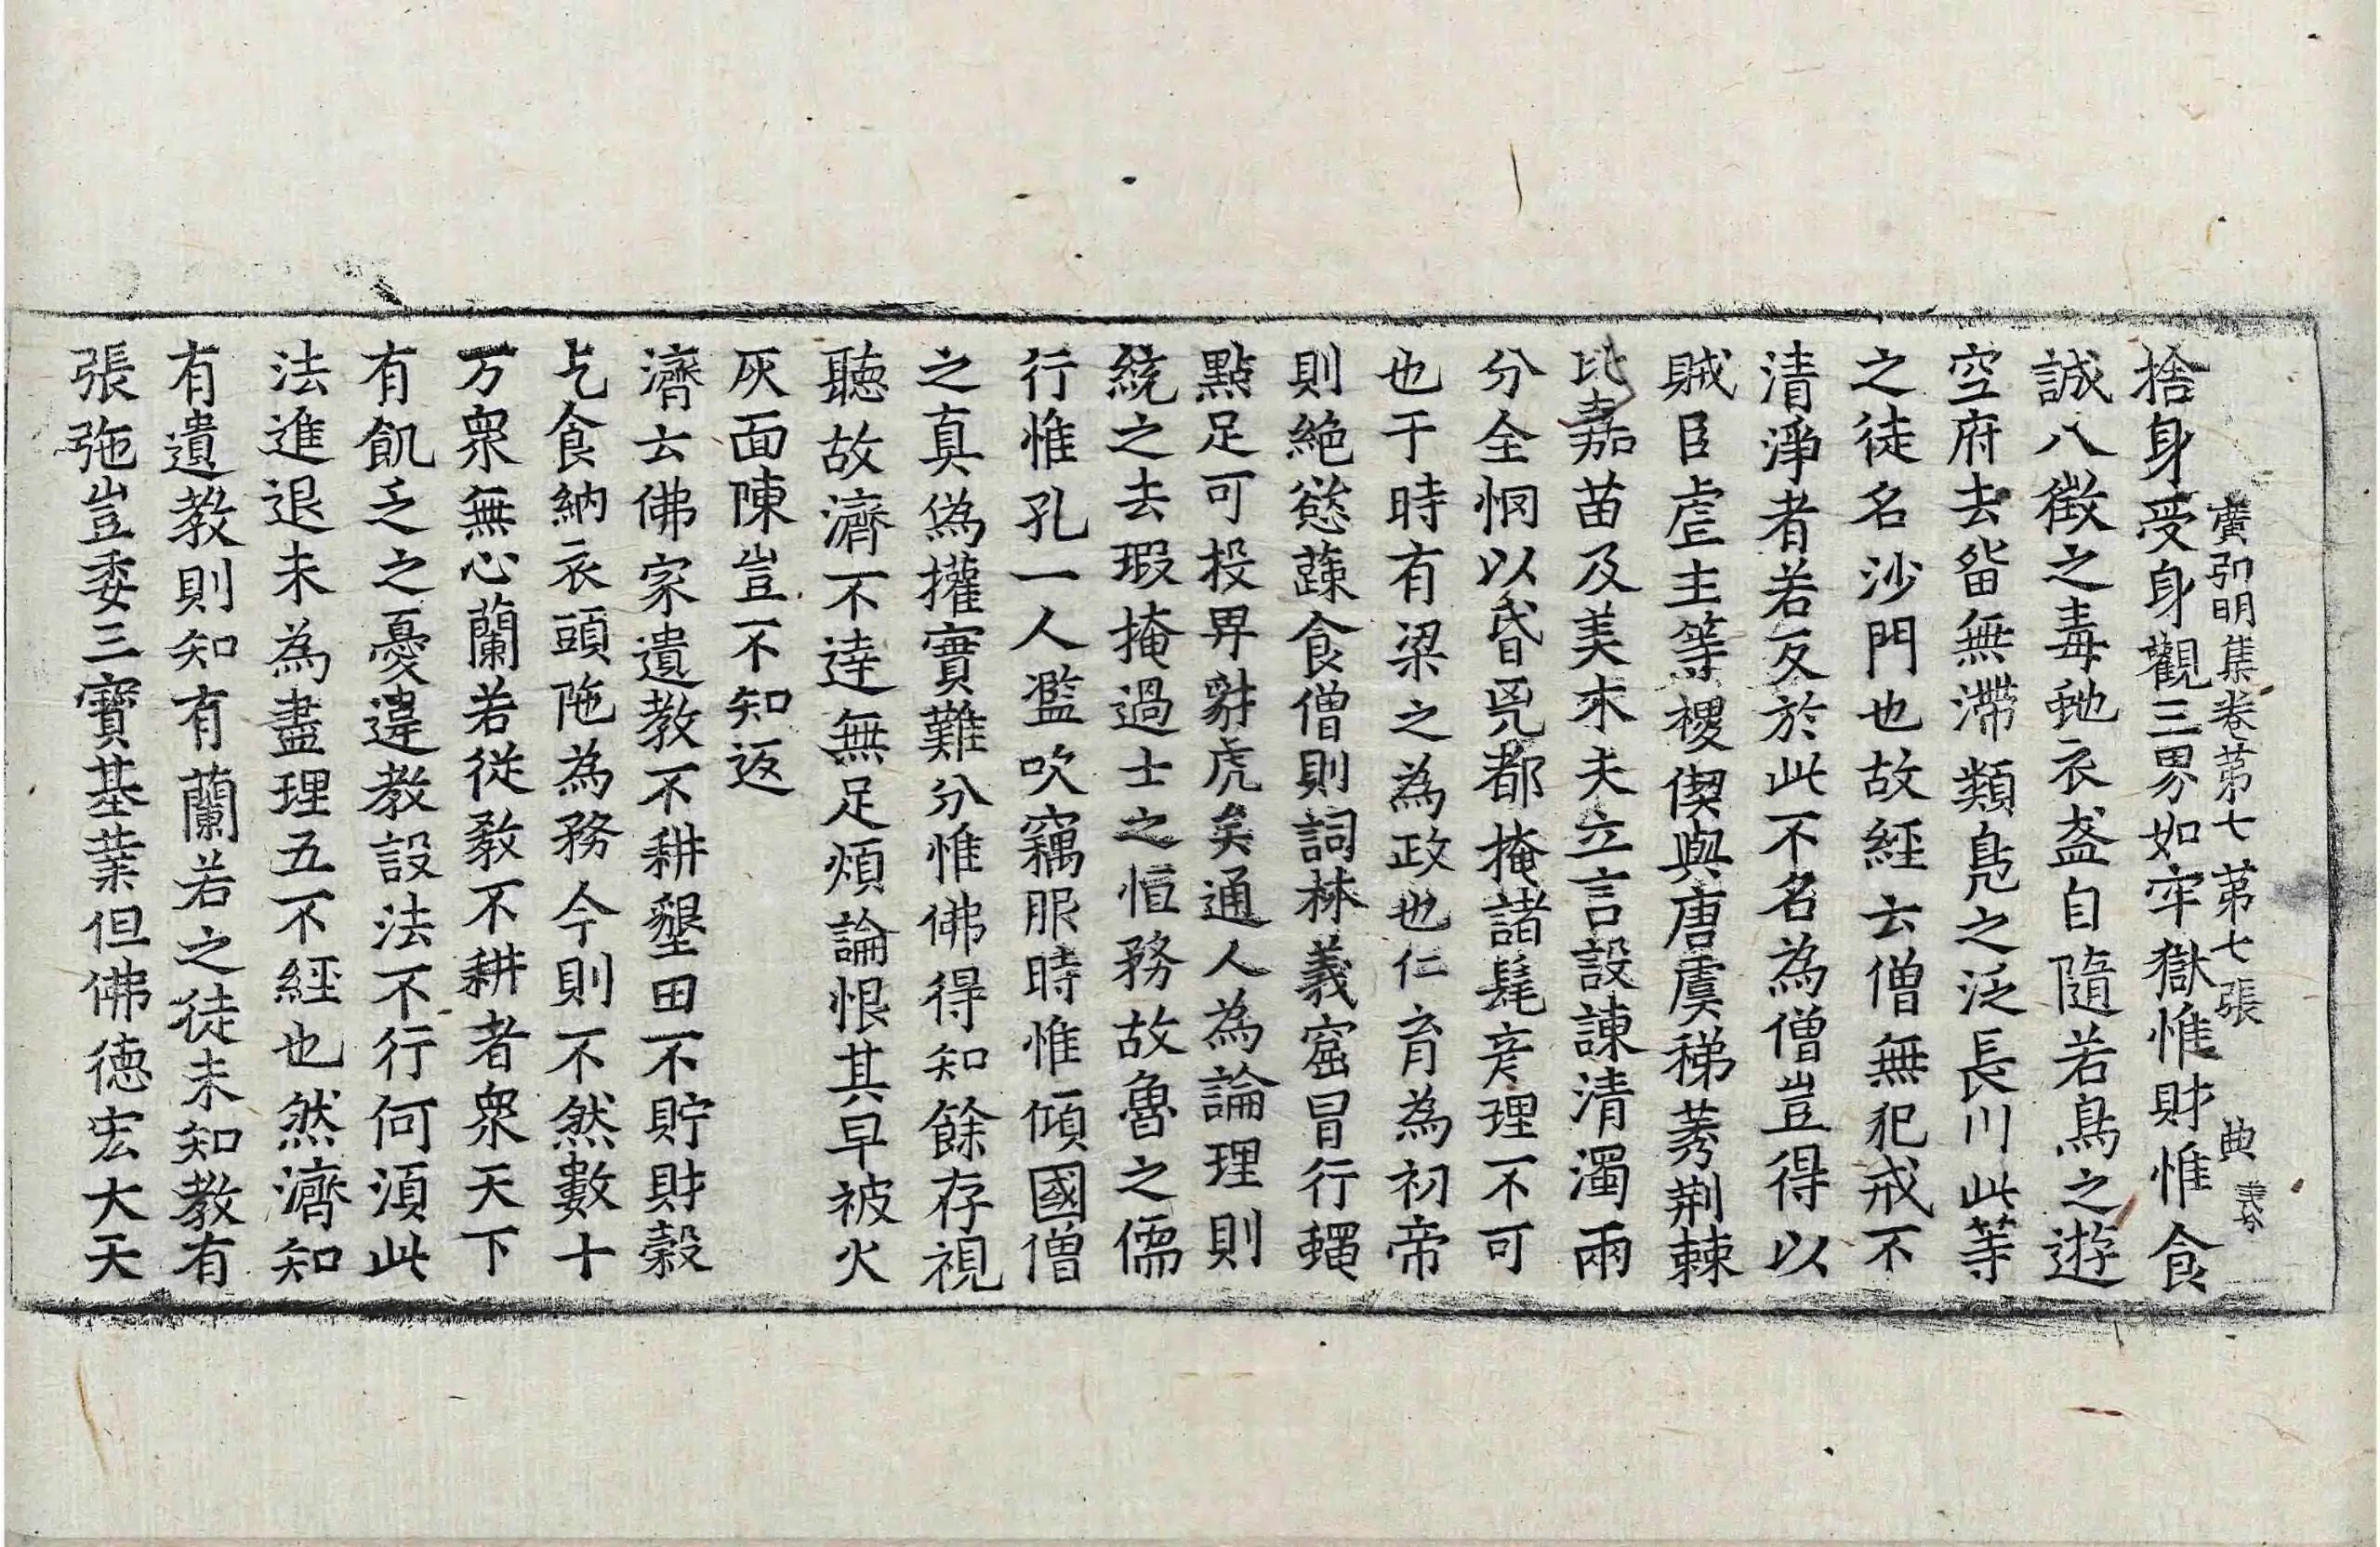 廣弘明集卷苐七苐七張 典
捨身受身觀三界如牢獄惟財惟食
誠八徴之毒虵衣盔自隨若鳥之遊
空府去畱無滯類鳧之泛長川此等
之徒名沙門也故經云僧無犯戒不
清淨者若反於此不名為僧豈得以
賊臣虐主等禝偰與唐虞稊莠荆棘
比嘉苗及美木夫立言設諫清濁兩
分全惘以昏皃都掩諸髦彦理不可
也于時有梁之為政也仁育為初帝
則絶慾蔬食僧則詞林義窟冒行蠅
點足可投畀豺虎矣通人為論理則
統之去瑕掩過士之恒務故魯之儒
行惟孔一人濫吹竊服時惟傾國僧
之真偽權實難分惟佛得知餘存視
聽故濟不逹無足煩論恨其早被火
灰面陳豈不知返
濟云佛家遺教不耕墾田不貯財穀
乞食納衣頭陁為務今則不然數十
万衆無心蘭若從教不耕者衆天下
有飢乏之憂違教設法不行何湏此
法進退未為盡理五不經也然濟知
有遺教則知有蘭若之徒未知教有
張㢮豈委三寶基業但佛德宏大天